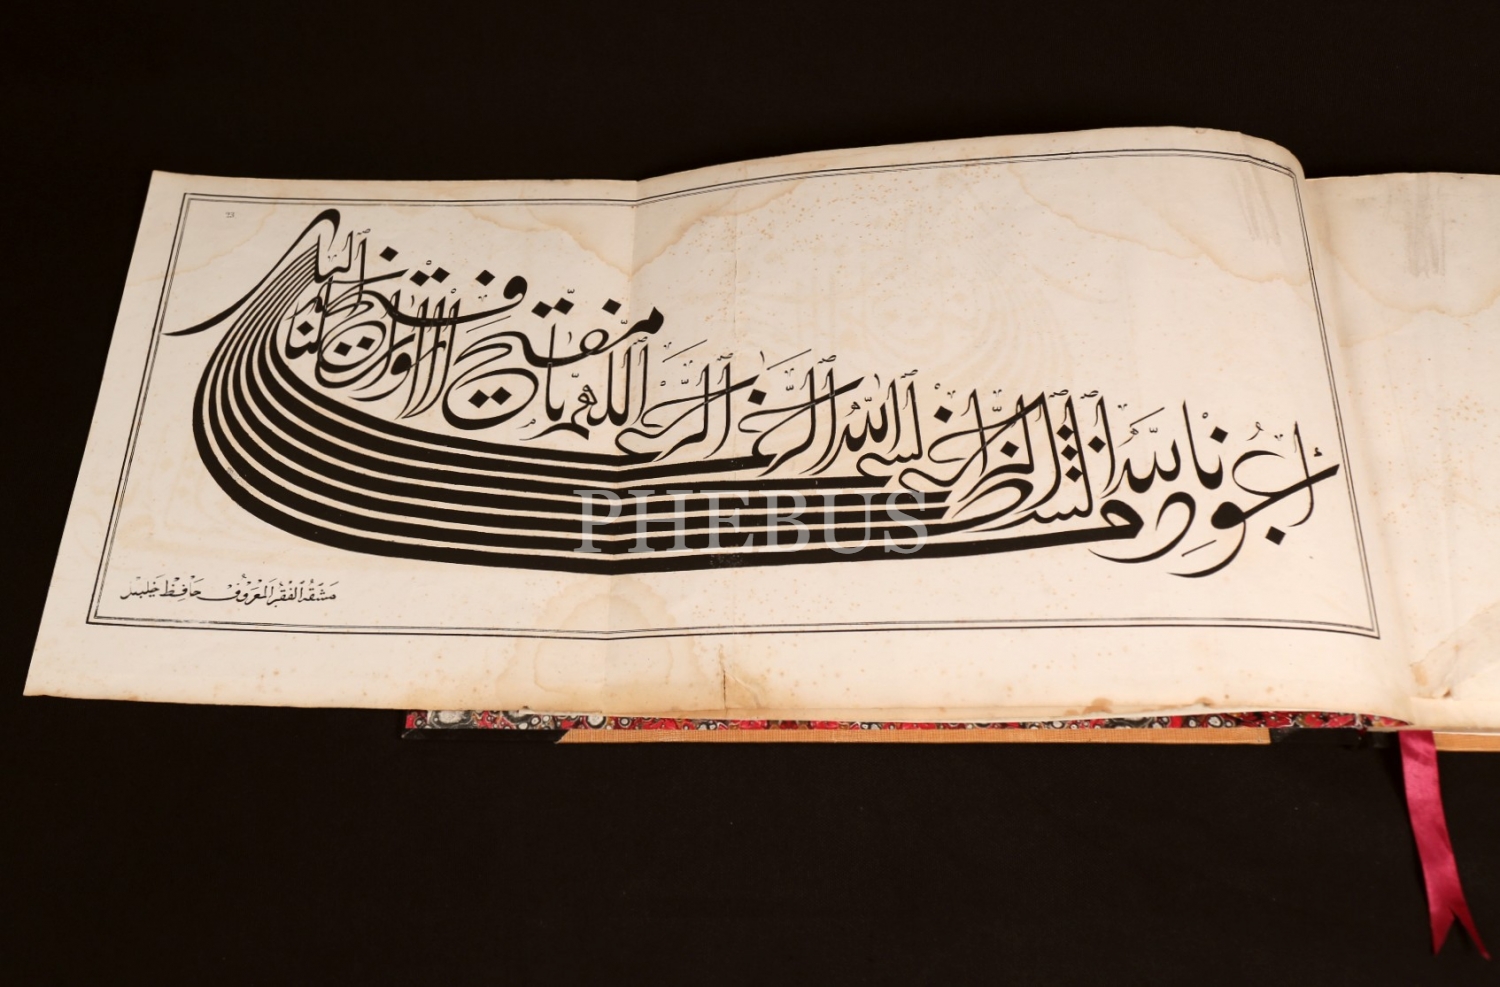 أعوذ بالله من الشيطان الرجيم
بسم الله الرحمن الرحيم
اللهم يا مفتح الأبواب افتح لنا خير الباب
مشقه الفقير المعروف حافظ خليل
PHEBUS